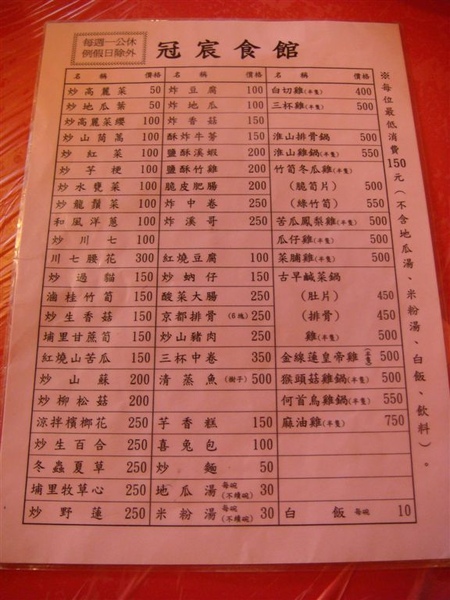 每週一公休
例假日除外
冠宸食館
名稱 價格 名稱 價格 名稱 價格
炒高麗菜 50 炸豆腐 100 白切雞(半隻) 400
炒地瓜葉 50 炸地瓜 100 三杯雞(半隻) 500
炒高麗菜纓 100 炸香菇 150
炒山茼萵 100 酥炸牛蒡 150 淮山排骨鍋 500
炒紅菜 100 鹽酥溪蝦 200 淮山雞鍋(半隻) 550
炒芋梗 100 鹽酥竹雞 200 竹筍冬瓜雞(半隻)
炒水甕菜 100 脆皮肥腸 200 (脆筍片) 500
炒龍鬚菜 100 炸中卷 250 (綠竹筍) 550
和風洋蔥 100 炸溪哥 250 苦瓜鳳梨雞(半隻) 500
炒川七 100 瓜仔雞(半隻) 500
川七腰花 300 紅燒豆腐 100 菜脯雞(半隻) 500
炒過貓 150 炒蚋仔 150 古早鹹菜鍋
滷桂竹筍 150 酸菜大腸 250 (肚片) 450
炒生香菇 150 京都排骨 250 (排骨) 450
埔里甘蔗筍 150 炒山豬肉 250 雞(半隻) 500
紅燒山苦瓜 150 三杯中卷 350 金線蓮皇帝雞(半隻) 500
炒山蘇 200 清蒸魚(樹子) 500 猴頭菇雞鍋(半隻) 500
炒柳松菇 200 何首烏雞鍋(半隻) 550
涼拌檳榔花 250 芋香糕 150 麻油雞(半隻) 750
炒生百合 250 喜兔包 100
冬蟲夏草 250 炒麵 50
埔里牧草心 250 地瓜湯 每碗(不續碗) 30
炒野蓮 250 米粉湯 每碗(不續碗) 30 白飯 每碗 10
※每位最低消費150元(不含地瓜湯、米粉湯、白飯、飲料)。